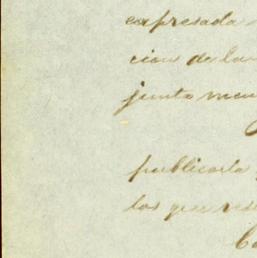 espresada
cion de la
junta men
publicarla
los que res